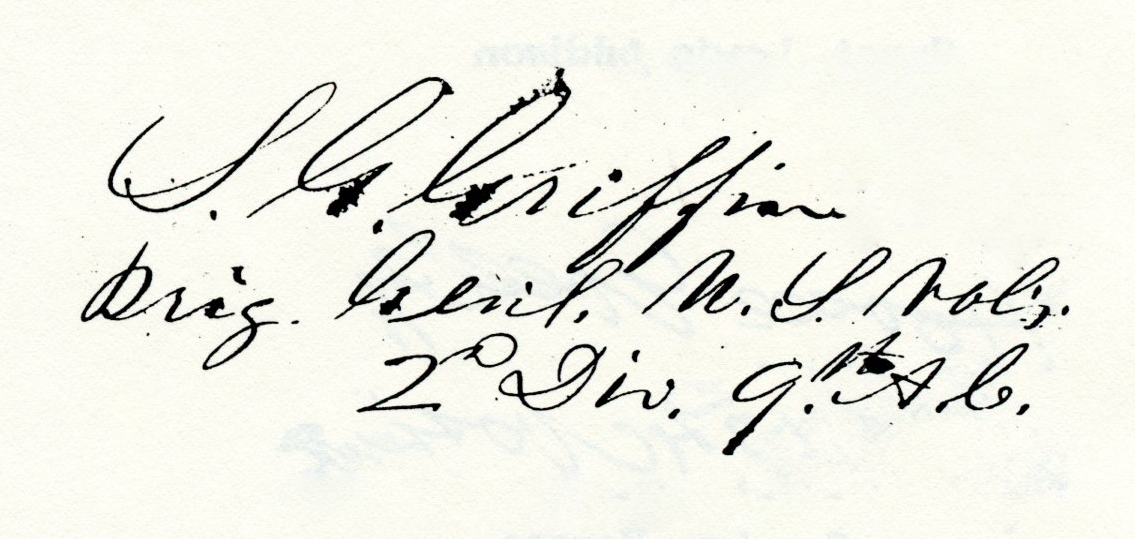 S. G. Griffin
Brig. Genl. U. S. Vols.
2D Div. 9th A. C.